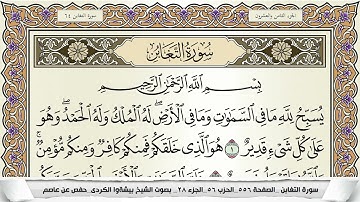 الجزء الثامن والعشرون
سورة التغابن ٦٤
سُورَةُ التَّغَابُنِ
بِسْمِ اللَّهِ الرَّحْمَٰنِ الرَّحِيمِ
يُسَبِّحُ لِلَّهِ مَا فِي السَّمَٰوَٰتِ وَمَا فِي الْأَرْضِ ۖ لَهُ الْمُلْكُ وَلَهُ الْحَمْدُ ۖ وَهُوَ
عَلَىٰ كُلِّ شَيْءٍ قَدِيرٌ ١ هُوَ الَّذِي خَلَقَكُمْ فَمِنكُمْ كَافِرٌ وَمِنكُم مُّؤْمِنٌ ۚ
سورة التغابن .. الصفحة ٥٥٦ .. الحزب ٥٦ .. الجزء ٢٨ .. بصوت الشيخ بيشةوا الكردي .. حفص عن عاصم